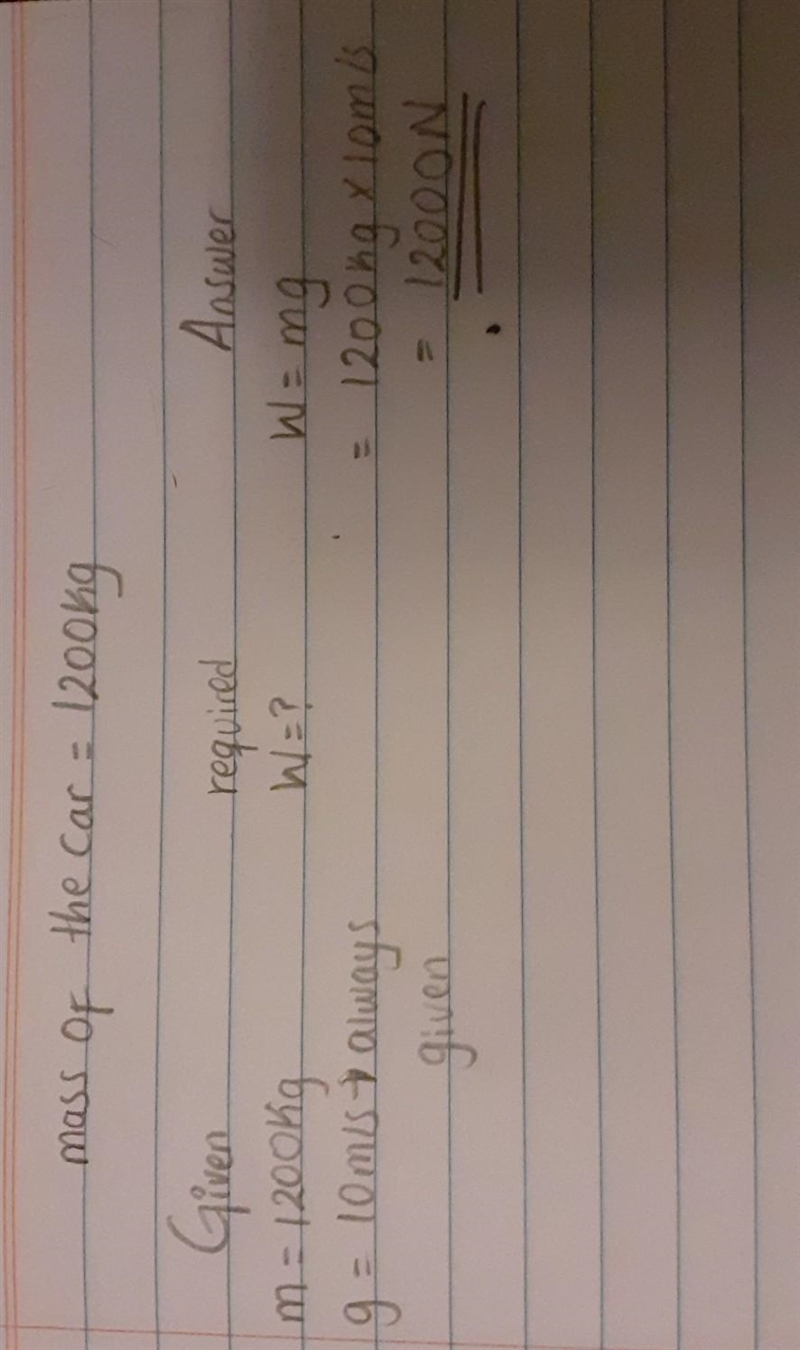 mass of the car = 1200kg
Given required Answer
m = 1200kg W=? W = mg
g = 10m/s → always = 1200kg x 10m/s
given = 12000N